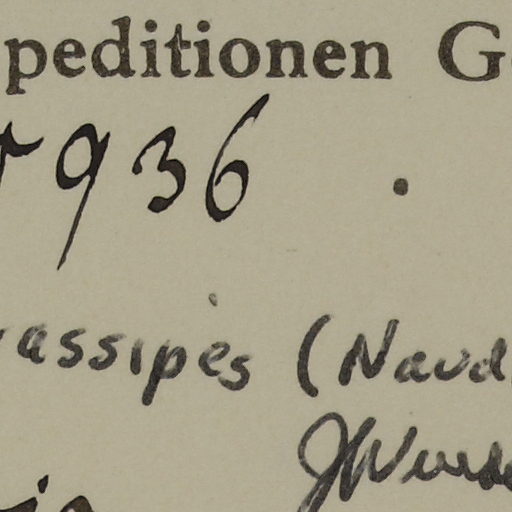 peditionen G
936 .
assipes (Naud
JWurd